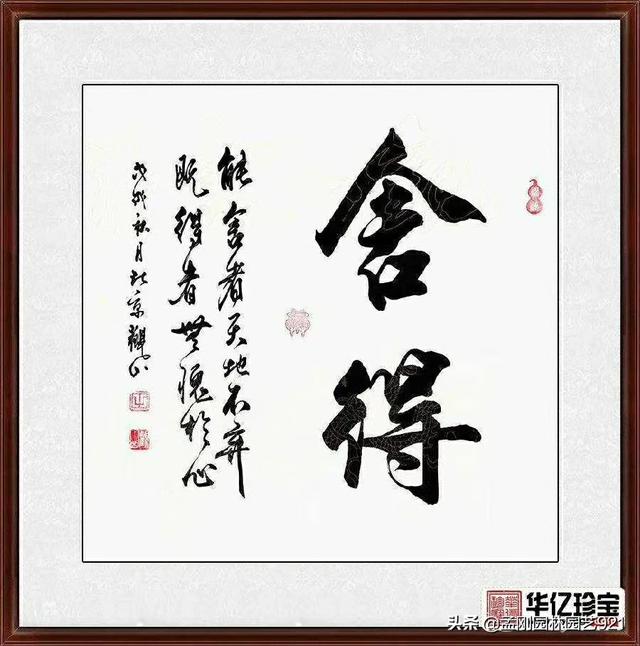 舍得
能舍者天地不弃
既得者無愧於心
戊戌秋月
京
华亿珍宝
头条 @孟刚园林园艺921